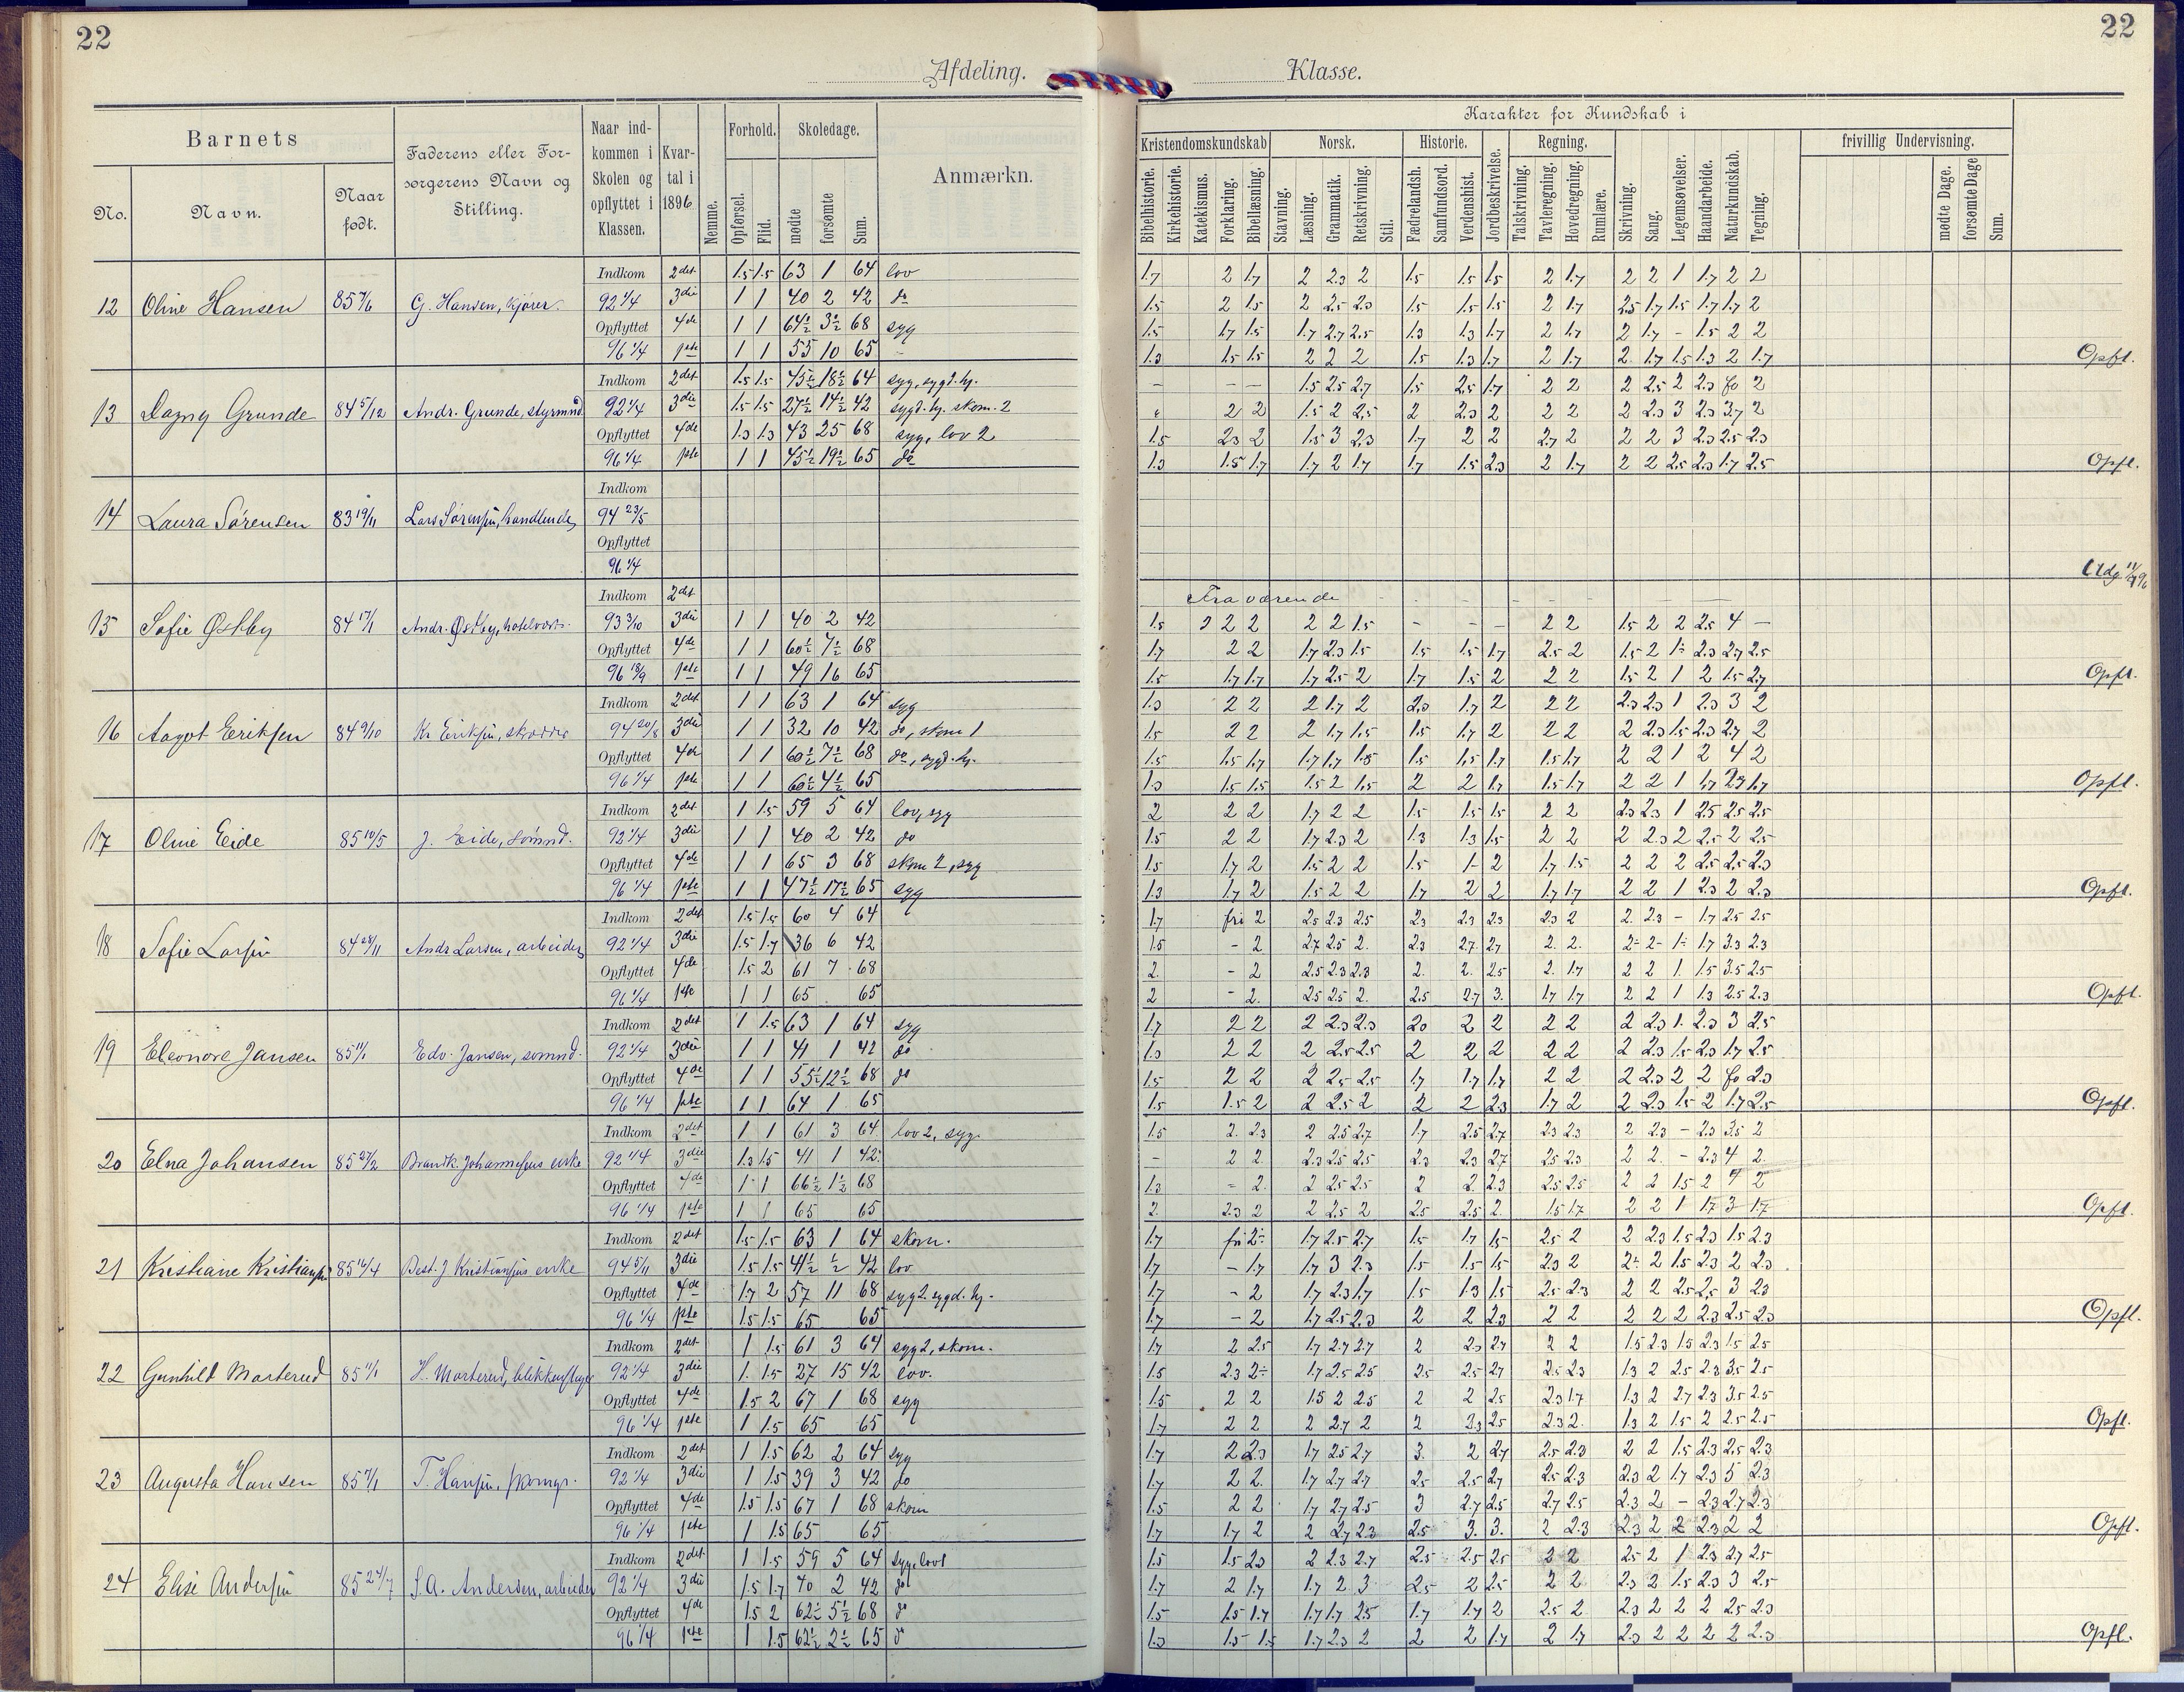 22
22
Afdeling.
Klasse.
Barnets
No.
Navn.
Naar født.
Faderens eller Forsørgerens Navn og Stilling.
Naar indkommen i Skolen og opflyttet i Klassen.
Kvartal i 1896
Nemme.
Forhold.
Opførsel.
Flid.
Skoledage.
mødte
forsømte
Sum.
Anmærkn.
Karakter for Kundskab i
Kristendomskundskab
Bibelhistorie.
Kirkehistorie.
Katekismus.
Forklaring.
Bibellæsning.
Norsk.
Stavning.
Læsning.
Grammatik.
Retskrivning.
Stil.
Historie.
Fædrelandsh.
Samfundsord.
Verdenshist.
Jordbeskrivelse.
Regning.
Talskrivning.
Tavleregning.
Hovedregning.
Rumlære.
Skrivning.
Sang.
Legemsøvelser.
Haandarbeide.
Naturkundskab.
Tegning.
frivillig Undervisning.
mødte Dage.
forsømte Dage
Sum.
Indkom 2det 1.5 1.5 63 1 64 lov 1.7 2 1.7 2 2.3 2 1.5 1.5 1.5 2 1.7 2 2 1 1.7 2 2
12 Oline Hansen 85 7/6 G. Hansen, kjører. 92 1/4 3die 1 1 40 2 42 do 1.5 2 1.5 2 2.5 2.3 1.5 1.5 1.5 2 1.7 2.5 1.7 1.5 1.7 1.7 2
Opflyttet 4de 1 1 64½ 3½ 68 syg 1.5 1.7 1.5 1.7 2.7 2.5 1.3 1.3 1.7 2 1.7 2 1.7 - 1.5 2 2
96 1/4 1ste 1 1 55 10 65 - 1.3 1.5 1.5 2 2 2 1.5 1.3 1.7 2 1.7 2 1.7 1.5 1.3 2 1.7 Opfl.
Indkom 2det 1.5 1.5 45½ 18½ 64 syg, sygd. hj. - - - 1.5 2.5 2.7 1.5 2.5 1.7 2 2 2 2.5 2 2.3 fo 2
13 Dagny Grunde 84 5/12 Andr. Grunde, styrmnd. 92 1/4 3die 1.5 1.5 27½ 14½ 42 sygd. hj. skom. 2 2 2 1.5 2 2.5 2 2.3 2 2 2 2 2.3 3 2.3 3.7 2
Opflyttet 4de 1.3 1.3 43 25 68 syg, lov 2 1.5 2.3 2 1.5 3 2.3 1.7 2 2 2.7 2 2 2 3 2.3 2.5 2.3
96 1/4 1ste 1 1 45½ 19½ 65 do 1.3 1.5 1.7 1.7 2 1.7 1.7 1.5 2.3 2 1.7 2 2 2.5 2.3 1.7 2.5 Opfl.
Indkom
14 Laura Sørensen 83 19/11 Lars Sørensen, handlende, 94 23/5
Opflyttet
96 1/4 Udg.
Indkom 2det Fraværende
15 Sofie Østby 84 17/1 Andr. Østby, hotelvært. 93 3/10 3die 1 1 40 2 42 1.5 2 2 2 2 2 1.5 - - - 2 2 1.5 2 2 2.5 4 -
Opflyttet 4de 1 1 60½ 7½ 68 1.7 2 2 1.7 2.3 1.5 1.5 1.5 1.7 2.5 2 1.5 2 1÷ 2.3 2.7 2.5
96 18/9 1ste 1 1 49 16 65 1.5 1.7 1.7 1.7 2.5 2 1.7 1.5 2 2 2 1.5 2 1 2 1.5 2.7 Opfl.
Indkom 2det 1 1 63 1 64 syg 1.3 2 2 2 1.7 2 2.3 1.7 2 2 2 2.3 2.3 1 2.3 3 2
16 Aagot Eriksen 84 9/10 Kr. Eriksen, skrædder 94 20/8 3die 1 1 32 10 42 do, skom 1 1.5 2 2 2 1.7 1.5 1.5 1.7 2 2 2 2 2.3 1.5 2.3 2.7 2
Opflyttet 4de 1 1 60½ 7½ 68 do, sygd. hj. 1.5 1.5 1.7 1.7 1.7 1.5 1.5 1.5 1.7 1.5 1.7 2 2 1 2 4 2
96 1/4 1ste 1 1 60½ 4½ 65 1.3 1.5 1.5 1.5 2 1.5 2 2 1.7 1.5 1.7 2 2 1 1.7 2.7 1.7 Opfl.
Indkom 2det 1 1.5 59 5 64 lov, syg 2 2 2 1.7 2 2 1.5 1.5 1.5 2 2 2.3 2.3 1 2.5 2.5 2.5
17 Oline Eide 85 10/5 J. Eide, sømnd. 92 1/4 3die 1 1 40 2 42 do 1.5 2 2 1.7 2.3 2 1.3 1.3 1.5 2 2 2 2.3 2 2.5 2 2.5
Opflyttet 4de 1 1 65 3 68 skom 2, syg 1.5 1.7 2 1.5 2 2 1.5 1- 2 1.7 1.5 2 2 2 2.5 2.5 2.3
96 1/4 1ste 1 1 47½ 17½ 65 syg 1.3 1.7 2 1.5 2 2 1.7 2 2 1.7 1.7 2 2 1 2.3 2 2.3 Opfl.
Indkom 2det 1.5 1.5 60 4 64 1.7 fri 2 2.5 2.3 2.5 2.3 2.3 2.3 2.3 2 2 2.3 - 1.7 2.5 2.5
18 Sofie Larsen 84 28/11 Andr Larsen, arbeider, 92 1/4 3die 1.5 1.7 36 6 42 1.5 - 2 2.7 2.5 2 2.3 2.7 2.7 2 2 2- 2- 1÷ 1.7 3.3 2.3
Opflyttet 4de 1.5 2 61 7 68 2 - 2 2.5 2.3 2.3 2 2 2.5 2 1.7 2 2 1 1.5 3.5 2.5
96 1/4 1ste 1 1 65 65 2 - 2 2.5 2.5 2 2.5 2.7 3 1.7 1.7 2 2 1 1.3 2.5 2.3 Opfl.
Indkom 2det 1 1.5 63 1 64 syg 1.7 2 2 2 2.3 2.3 2.0 2 2 2 2 2 2.3 1 2.3 3 2.5
19 Eleonore Jansen 85 11/1 Edv. Jansen, sømnd. 92 1/4 3die 1 1 41 1 42 do 1.3 2 2 2 2.5 2.5 2 2 2 2 2 2 2.3 1.5 2.3 1.7 2.5
Opflyttet 4de 1 1 55½ 12½ 68 do 1.5 2 2 2 2.5 2.5 1.7 1.7 1.7 2 2 2 2.3 2 2 fo 2.3
96 1/4 1ste 1 1 64 1 65 1.5 1.5 2 2 2.5 2 2 2 2.3 1.7 2 2 2.3 1.5 2 1.7 2.5 Opfl.
Indkom 2det 1 1 61 3 64 lov 2, syg. 1.5 2 2.3 2 2.5 2.7 1.7 2.5 2.7 2.3 2.3 2 2.3 - 2.3 3.5 2
20 Elna Johansen 85 27/2 Brandk. Johannesens enke 92 1/4 3die 1.3 1.5 41 1 42 - 2 2 2.3 2.5 2.5 2.3 2.3 2.7 2.5 2.3 2 2 - 2.3 4 2
Opflyttet 4de 1 1 66½ 1½ 68 1.3 - 2 2 2.5 2.5 2 2 2.3 2.5 2.5 2 2 1.5 2 4 2
96 1/4 1ste 1 1 65 65 2 2.3 2 2 2.5 2 2.5 2.5 2 1.5 1.7 2 2 1 1.7 3 1.7 Opfl.
Indkom 2det 1.5 1.5 63 1 64 skom. 1.7 fri 2÷ 1.7 2.5 2.7 1.5 1.7 1.5 2.5 2 2 2.3 1.5 2.3 1.5 2.3
21 Kristiane Kristiansen 85 16/4 Best. J Kristiansens enke 94 5/11 3die 1.5 1.5 41½ ½ 42 lov 1.7 - 1.7 1.7 3 2.3 1.5 1.5 1.5 2.3 2 2÷ 2 1.5 2.3 2 2.3
Opflyttet 4de 1.7 2 57 11 68 syg 2. sygd. hj. 1.7 - 2 1.7 2.3 1.7 1.5 1.3 1.5 2.5 2.3 2 2 2.5 2.5 3 2.3
96 1/4 1ste 1.5 1.5 65 65 1.7 - 2 1.7 2.5 2.3 2 2 2.3 2 2 2 2 2 2.3 2.5 2.3 Opfl.
Indkom 2det 1 1.5 61 3 64 syg 2, skom. 1.7 2 2.5 1.7 2.7 2.7 2 2.3 2.7 2 2 1.5 2.3 1.5 2.3 1.5 2.5
22 Gunhild Marterud 85 11/1 H. Marterud, blikkenslager 92 1/4 3die 1 1.5 27 15 42 lov. 1.5 2.3 2÷ 1.7 2.5 2.5 2.5 2.5 2.7 2.5 2.3 1.3 2 2.5 2.3 3.5 2.5
Opflyttet 4de 1.5 2 67 1 68 syg 1.5 2 2 1.5 2 2.5 2 2 2.5 2.3 1.7 1.3 2 2.7 2.3 3.5 2.5
96 1/4 1ste 1 1.5 65 65 1.7 2 2 2 2.7 2 2 2.3 2.5 2.3 2 1.3 2 1.5 2 2.5 2.5 Opfl.
Indkom 2det 1 1.5 62 2 64 syg 1.7 2 2.3 1.7 2.5 2.7 3 2 2.7 2.5 2.3 2 2 1.5 2.3 2.5 2.3
23 Augusta Hansen 85 7/1 T. Hansen, skomgr. 92 1/4 3die 1 1.5 39 3 42 do 1.7 2 2 1.7 2.7 2.7 2.5 2.5 2.7 2.5 2.3 2.3 2 1.7 2.3 5 2.3
Opflyttet 4de 1.5 1.5 67 1 68 skom 1.5 2 2 1.7 2.7 2.5 3 2.7 2.5 2.7 2.5 2.3 2 - 2.3 2.7 2.3
96 1/4 1ste 1 1.5 65 65 1.7 1.7 2 2 2.7 2.3 2.5 3 3 2 2.3 2.3 2 2 2.3 2 2 Opfl.
Indkom 2det 1 1.5 59 5 64 syg, lov 1 1.5 1.5 2.3 2 2.3 2.7 2.5 2.5 2.5 2 2 2.5 2 1 2.3 2.7 2.5
24 Elise Andersen 85 24/7 S. A. Andersen, arbeider 92 1/4 3die 1.5 1.7 40 2 42 do 1.7 2 1.7 1.7 2 3 2.5 2 2.5 2 2 2.3 2 1.5 2.3 3 2.5
Opflyttet 4de 1.5 2 62½ 5½ 68 do 1.5 1.5 1.7 1.7 1.7 2.5 1.7 1.7 2 2.5 2 2.3 2 2 2 2.5 2.3
96 1/4 1ste 1 1.5 62½ 2½ 65 do 1.3 1.5 1.5 1.7 2.3 2 2 2 1.7 2 1.7 2.3 2 2 2 2 2.3 Opfl.